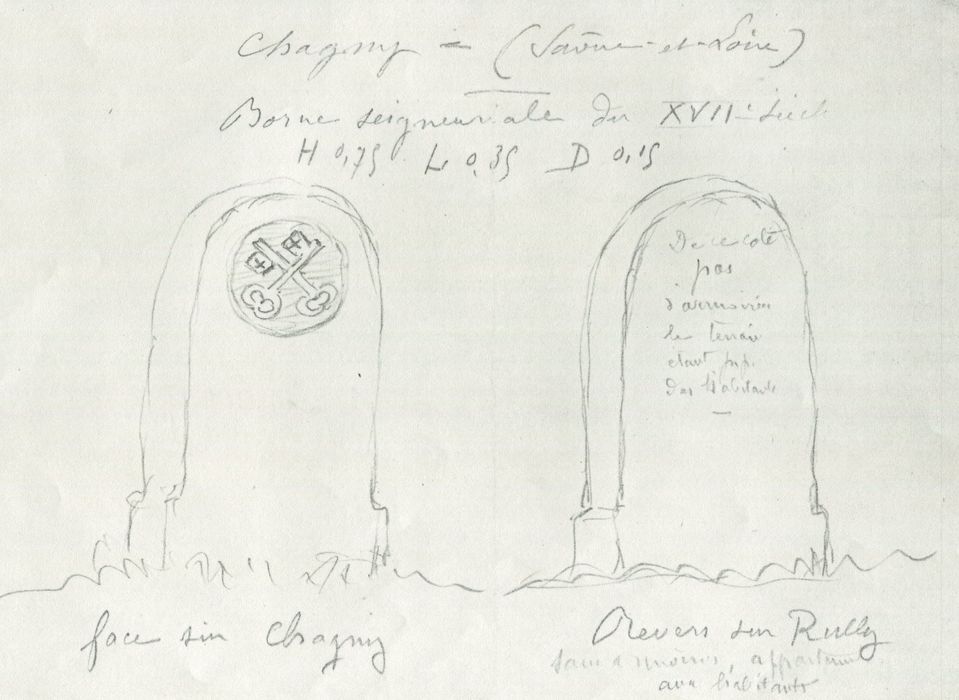 Chagny = (Saône-et-Loire)
Borne seigneuriale du XVIIe siècle
H 0,75 L 0,35 D 0,15
De ce coté
pas
d'armoiries
le terrain
étant
des habitants
face sur Chagny
Revers sur Rully
sans armoiries, appartenant
aux habitants